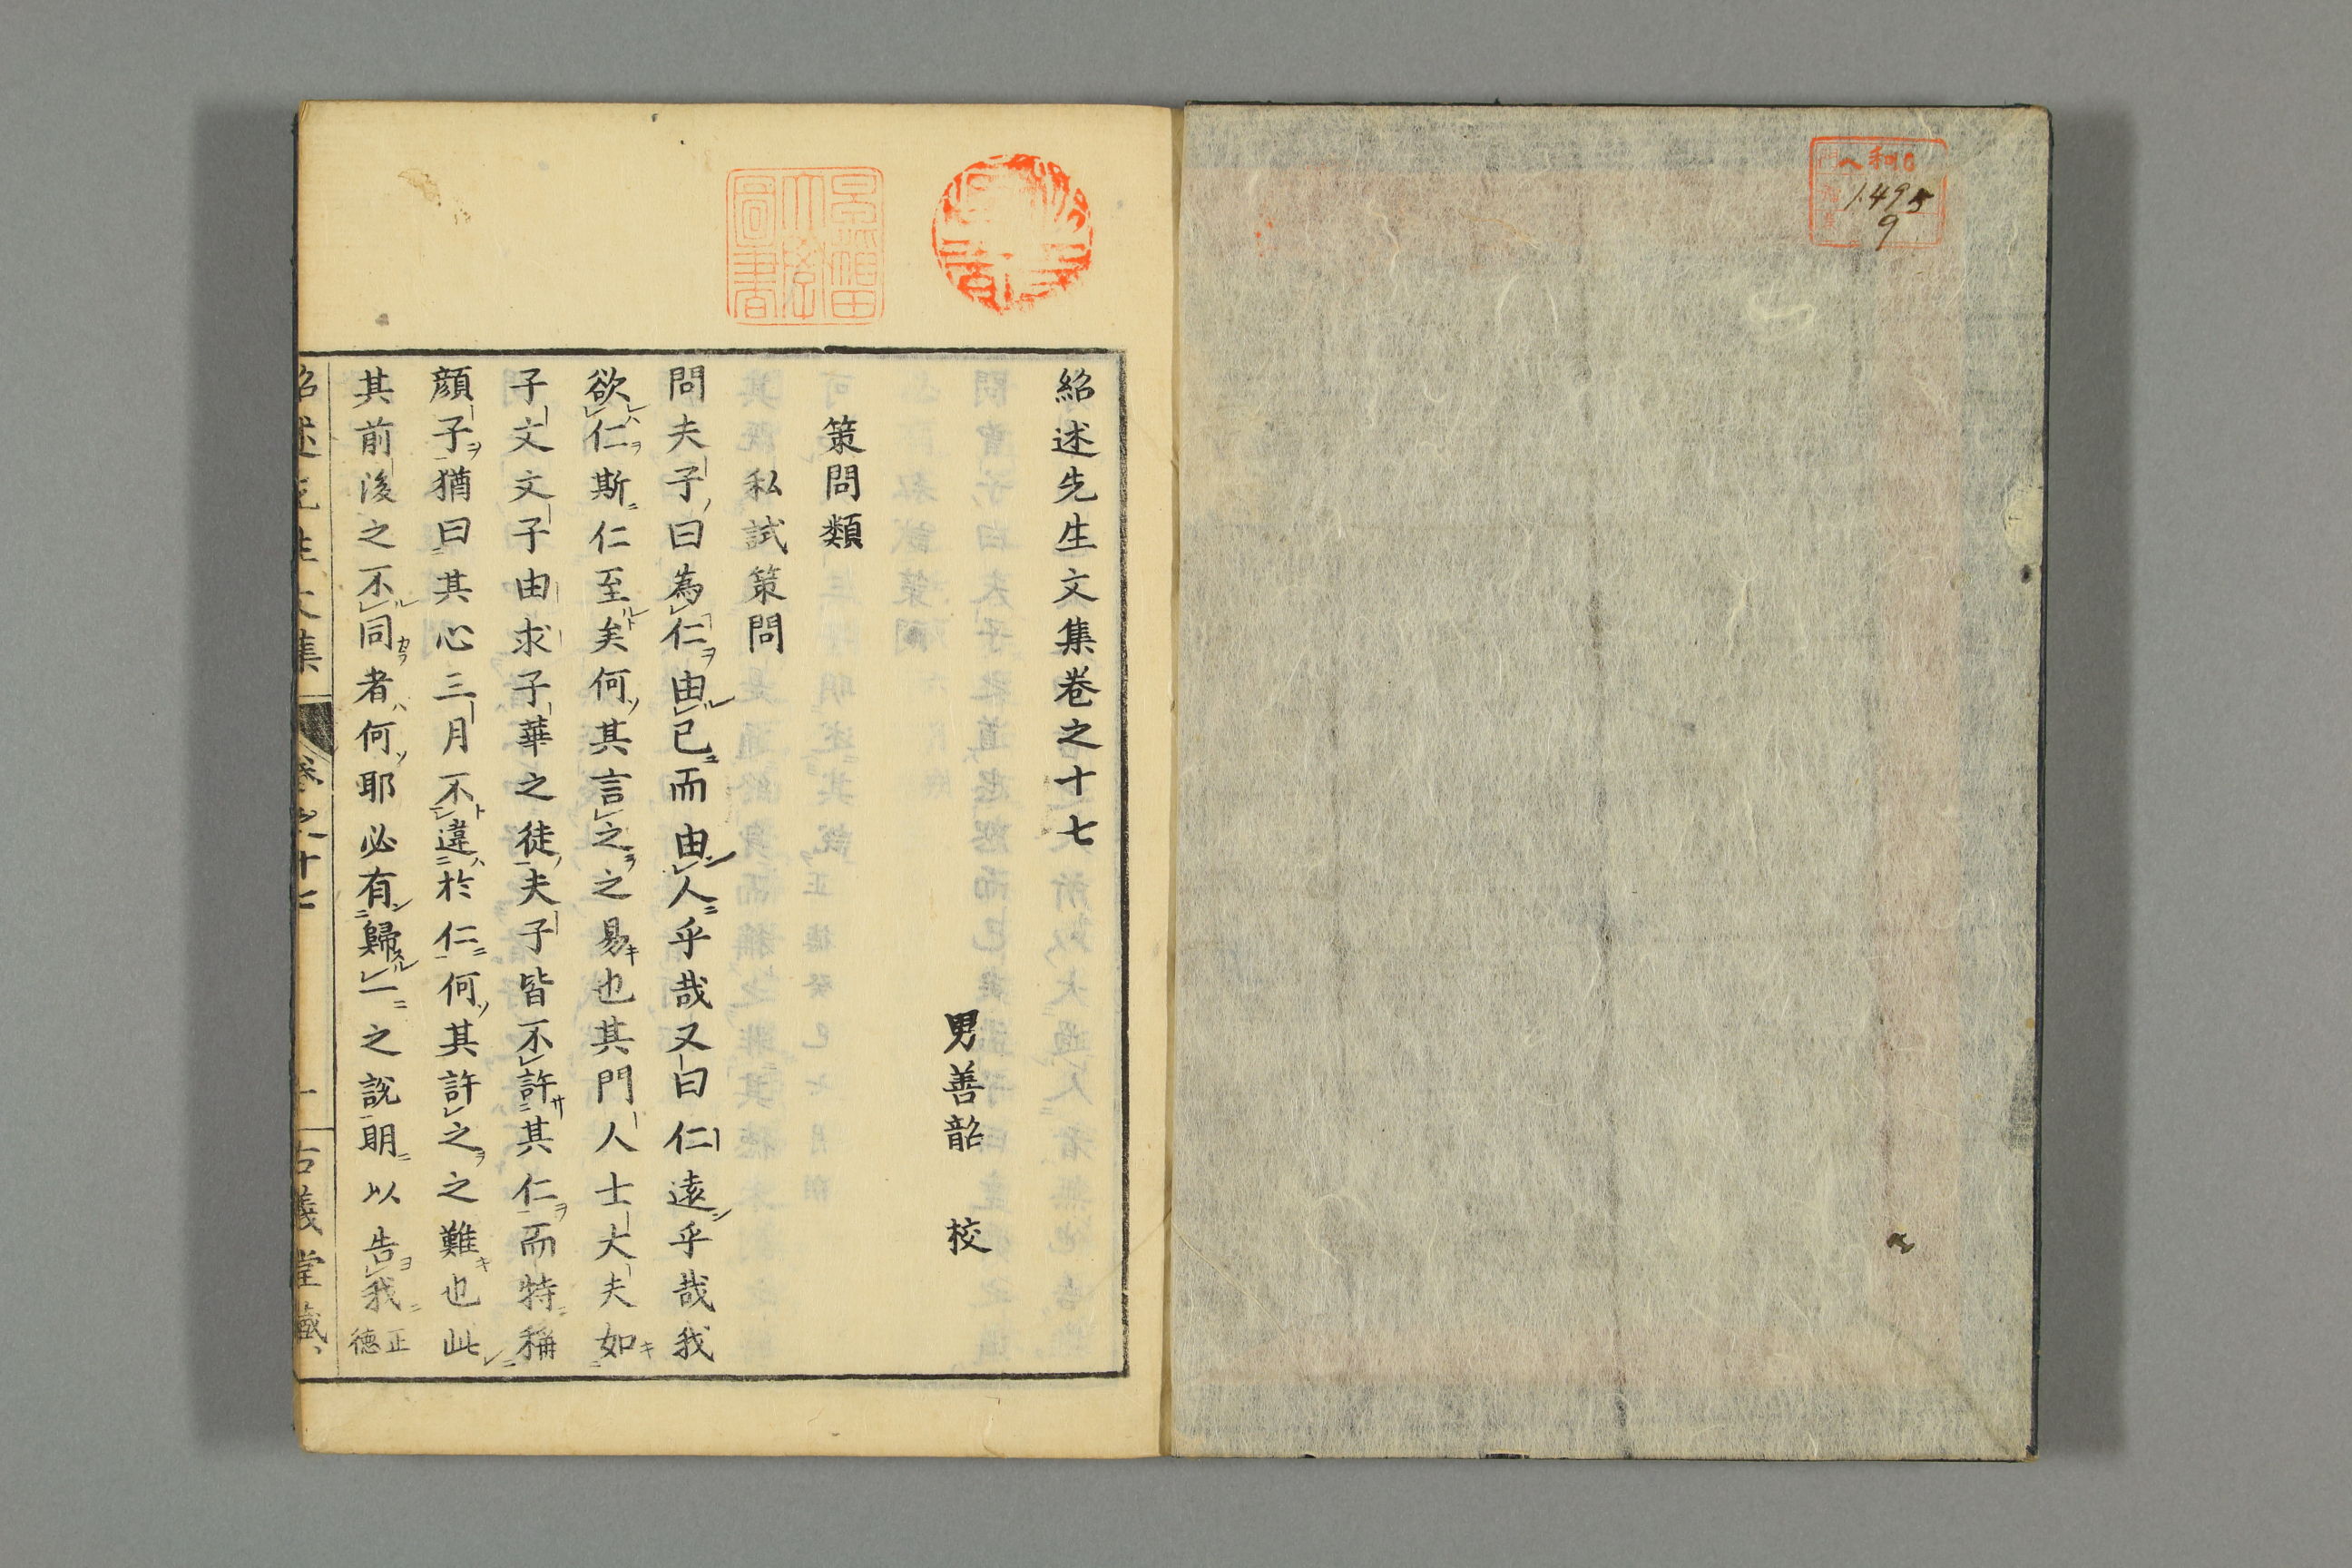 ヘ利6
1495
9
紹述先生文集卷之十七
男善韶　校
策問類
私試策問
問夫子曰為仁由己而由人乎哉又曰仁遠乎哉我
欲仁斯仁至矣何其言之之易也其門人士大夫如
子文文子由求子華之徒夫子皆不許其仁而特稱
顔子猶曰其心三月不違於仁何其許之之難也此
其前後之不同者何耶必有歸一之説明以告我正德
紹述先生文集　卷之十七　一　古義堂藏